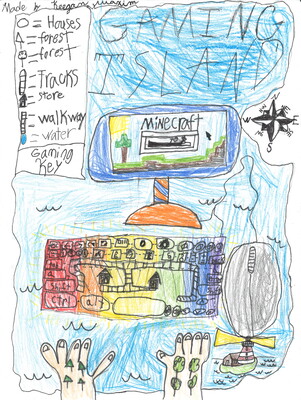 Made by Keegan,
GAMING
ISLAND
= Houses
= forest
= forest
= Tracks
= store
= walkway
= water
Gaming
Key
Minecraft
N
E
S
W
shift
ctrl
alt